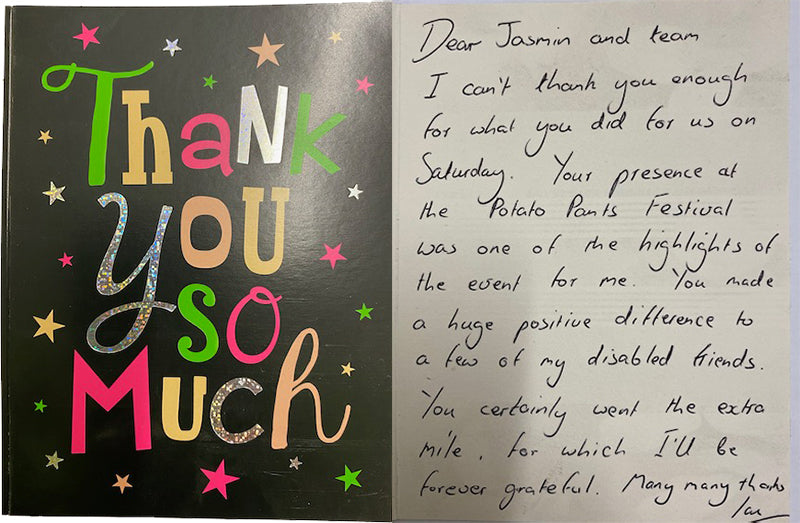 Thank
you
so
Much
Dear Jasmin and team
I can't thank you enough
for what you did for us on
Saturday. Your presence at
the Potato Pants Festival
was one of the highlights of
the event for me. You made
a huge positive difference to
a few of my disabled friends.
You certainly went the extra
mile, for which I'll be
forever grateful. Many many thanks
Ian